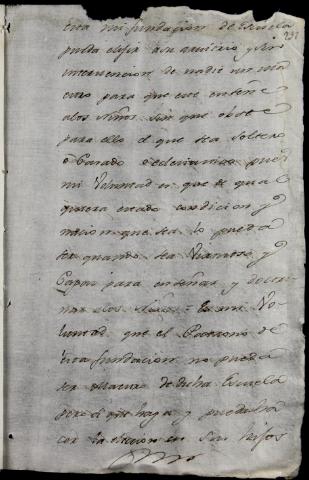 esta mi fundacion de Escuela
pueda elejir a su arvitrio y sin
intervencion de nadie un ma
estro para que este enseñe
a los Niños sin que obste
para ello el que sea soltero
o Casado o eclesiastico pues
mi Voluntad es que de qual
quiera estado condicion y
nacion que sea lo pueda
ser quando sea Virtuoso y
Capaz para enseñar y doctri
nar a los Niños = Es mi Vo-
luntad que el Patrono de
esta fundacion no pueda
ser Maestro de dicha Escuela
pero si que haya y pueda ha
cer la eleccion en sus hijos